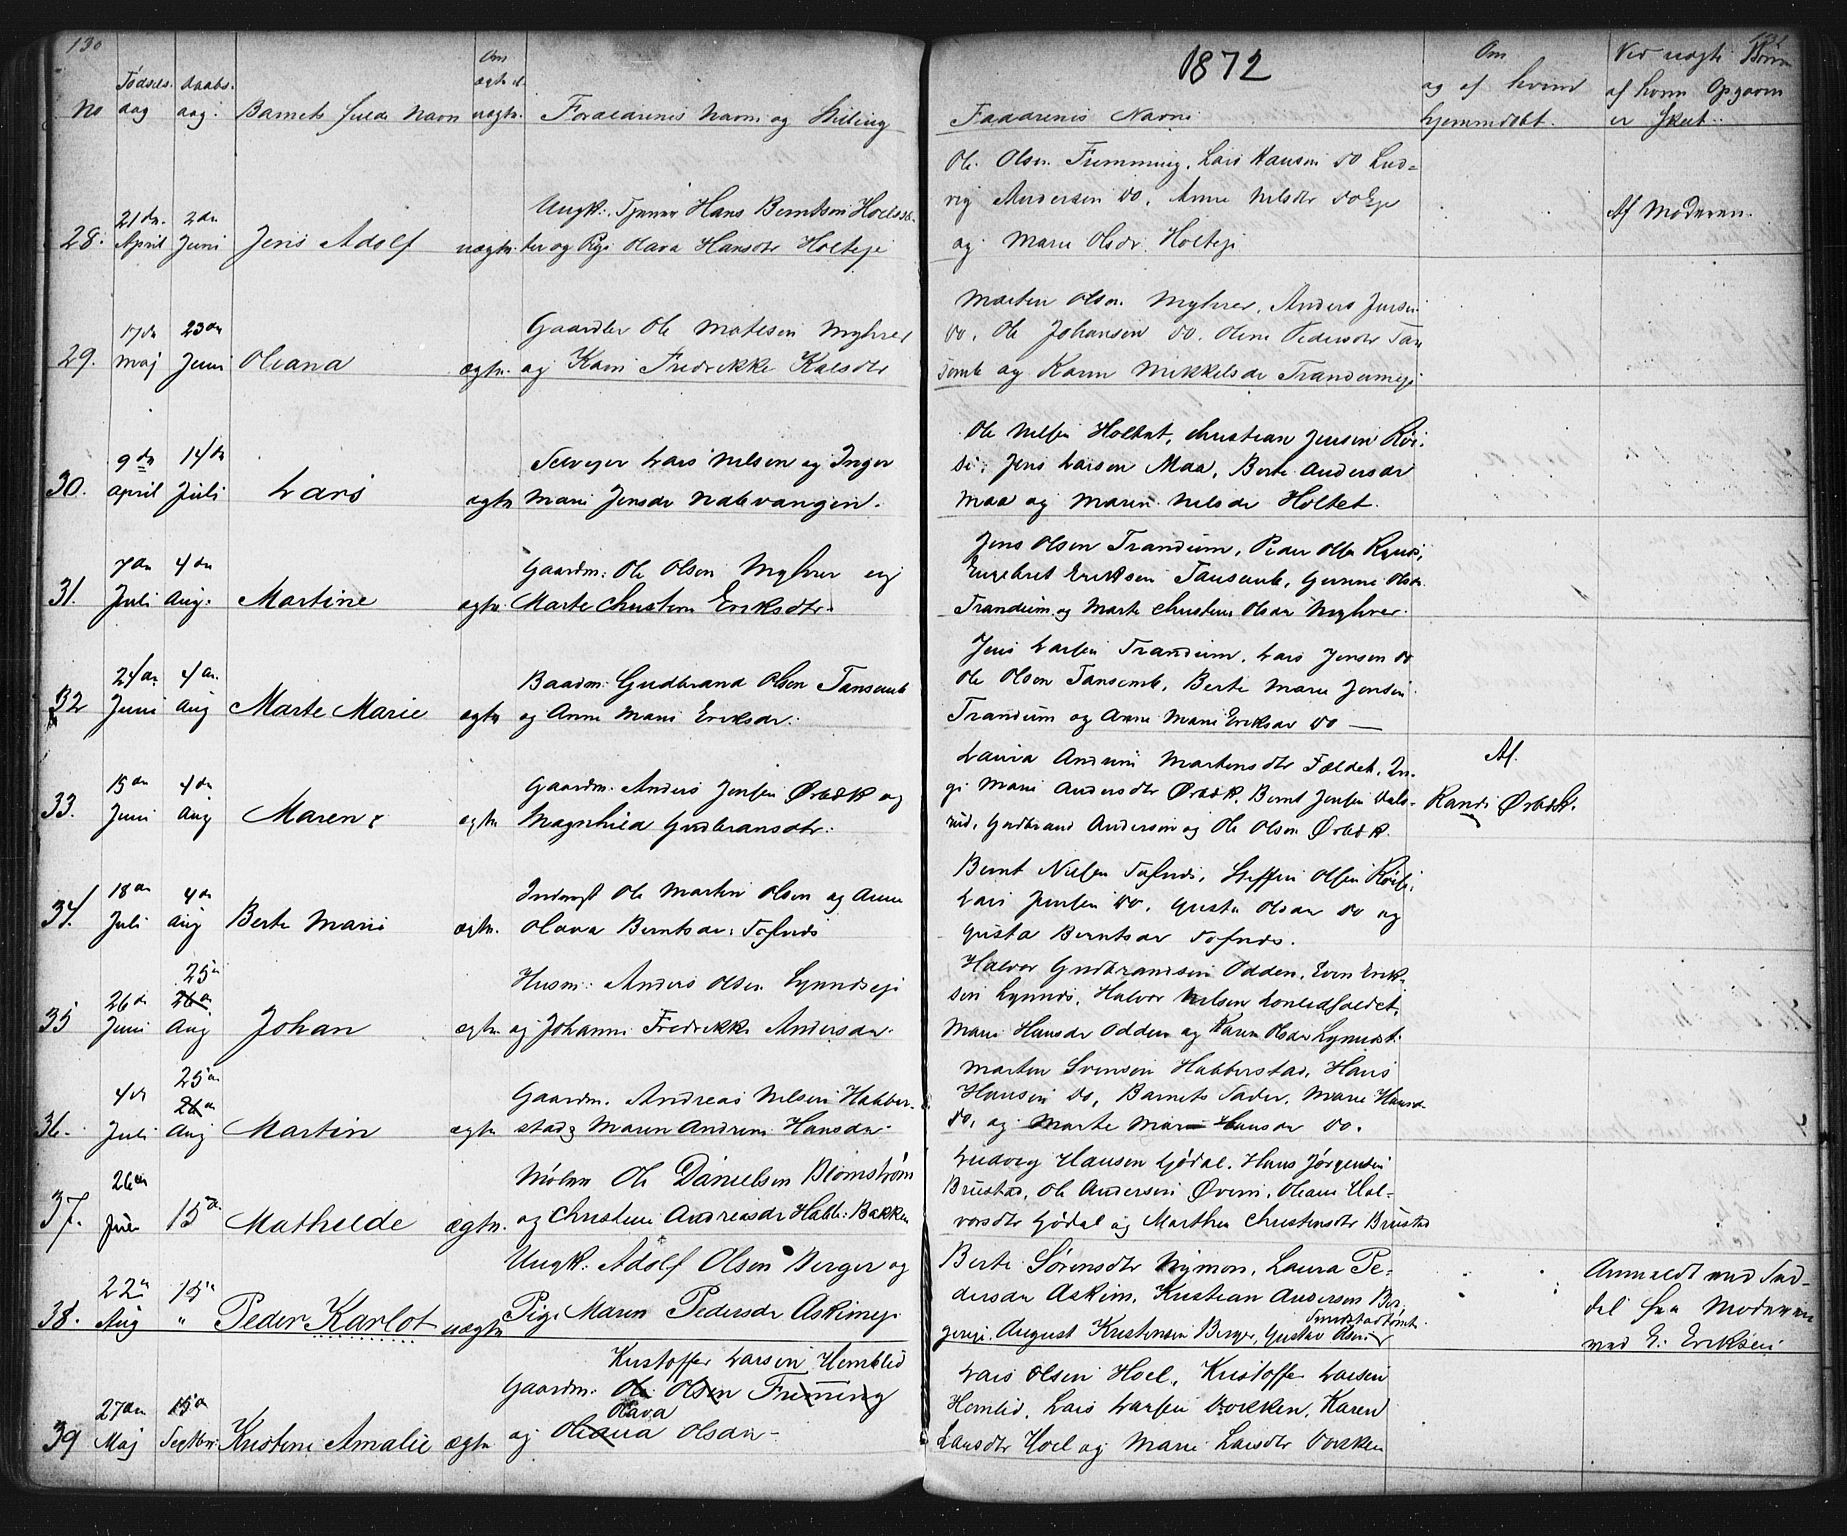 130
1872
131
No
Fødsels-
dag
Daabs-
dag.
Barnets fulde Navn
Om
ægte el.
uægte.
Forældrenes Navn og Stilling
Faddernes Navne
Om
og af hvem
hjemmedøbt.
Ved uægte Børn
af hvem Opgaven
er skeet.
28.
21de
April
2den
Juni
Jens Adolf
uægte
Ungk: Tjener Hans Berntsen
og Pige Olava Hansdtr Holteje
Ole Olsen Fremming, Lars Hansen do Lud-
vig Andersen do, Anne Nilsdtr do Eje
og Marie Olsdr. Holteje
Af Moderen.
29.
17de
Maj
23de
Juni
Oliana
ægte.
Gaardbr Ole Matesen Myhrer
og Kari Fredrekke Kalsdtr
Morten Olsen Myhrer, Anders Jensen
do, Ole Johansen do. Oline Pedersdtr Tan
semb og Karen Mikkelsdr Trandumeje
30.
9de
April
14de
Juli
Lars
ægte
Selvejer Lars Nilsen og Inger
Marie Jensdr Nabevangen.
Ole Nilsen Holtet, Christian Jensen Røi-
si, Jens Larsen Maa, Berte Andersdr
Maa og Maren Nilsdr Holtet.
31.
7de
Juli
4de
Aug.
Martine
ægte.
Gaardm: Ole Olsen Myhrer og
Marte Christine Eriksdtr.
Jens Olsen Trandum, Peder Olsen
Engebret Eriksen Tansemb, Gunni Olsdr
Trandum og Marte Christine Olsdr Myhrer.
32
24de
Juni
4de
Aug
Marte Marie
ægte
Baadm: Gudbrand Olsen Tansemb
og Anne Marie Eriksdr.
Jens Larsen Trandum, Lars Jensen do
Ole Olsen Tansemb, Berte Marie Jensdr
Trandum og Anne Marie Eriksdr do —
33.
15de
Juni
4de
Aug
Maren
ægte
Gaardm: Anders Jensen Ørbæk og
Magnhild Gudbransdtr.
Laura Andrine Martensdtr Fældet, In-
ge Marie Andersdtr Ørbæk, Bernt Jensen Dals-
rud, Gudbrand Andersen og Ole Olsen Ørbæk.
Af
Randi Ørbæk.
34.
18de
Juli
4de
Aug
Berte Marie
ægte.
Inderst Ole Martin Olsen og Anne
Olava Berntsdr.
Bernt Nilsen, Steffen Olsen
Lars Jensen do, Gusta Olsdr do og
Gusta Berntsdr
35
26de
Juni
25de
26de
Aug
Johan
ægte
Husm: Anders Olsen Lynndseje
og Johanne Fredrekke Andersdr.
Halvor Gudbrandsen Odden, Even Erik-
sen Lynnds, Halvor Nilsen
Marie Hansdr Odden og Karen Olsdr
36.
4de
Juli
25de
26de
Aug
Martin
ægte
Gaardm. Andreas Nilsen Habber-
stad og Maren Andrine Hansdr.
Morten Svensen Habberstad, Hans
Hansen do, Barnets Fader, Marie Hansdr
do, og Marte Marie Hansdr do.
37.
26de
15de
Mathelde
ægte.
Møller Ole Danielsen Blomstrøm
og Christine Andreasdr Habb: Bakken
Ludvig Hansen Gjødal, Hans Jørgensen
Brustad, Ole Andersen Øveren, Oleane Hal-
vorsdtr Gjødal og Marthea Christensdtr Brustad
38.
22de
Aug
15de
"
Peder Karlot
uægte
Ungk: Adolf Olsen Berger og
Pige Maren Pedersdr Askimeje
Berte Sørensdtr Nymon, Laura Pe-
dersdtr Askim, Kristian Andersen Ber-
gereje, August Kristensen Berger, Gustav Olsen
Anmeldt ved Sed-
del fra Moderen
ved E: Eriksen
39
27de
Maj
15de
Septbr:
Kristine Amalie
ægte
Kristoffer Larsen Homblid
Gaardm: Ole Olsen Freming
Olava
og Oleana Olsdr-
Lars Olsen Hoel, Kristoffer Larsen
Homlid, Lars Larsen Dokken, Karen
Larsdtr Hoel og Marie Larsdtr Dokken